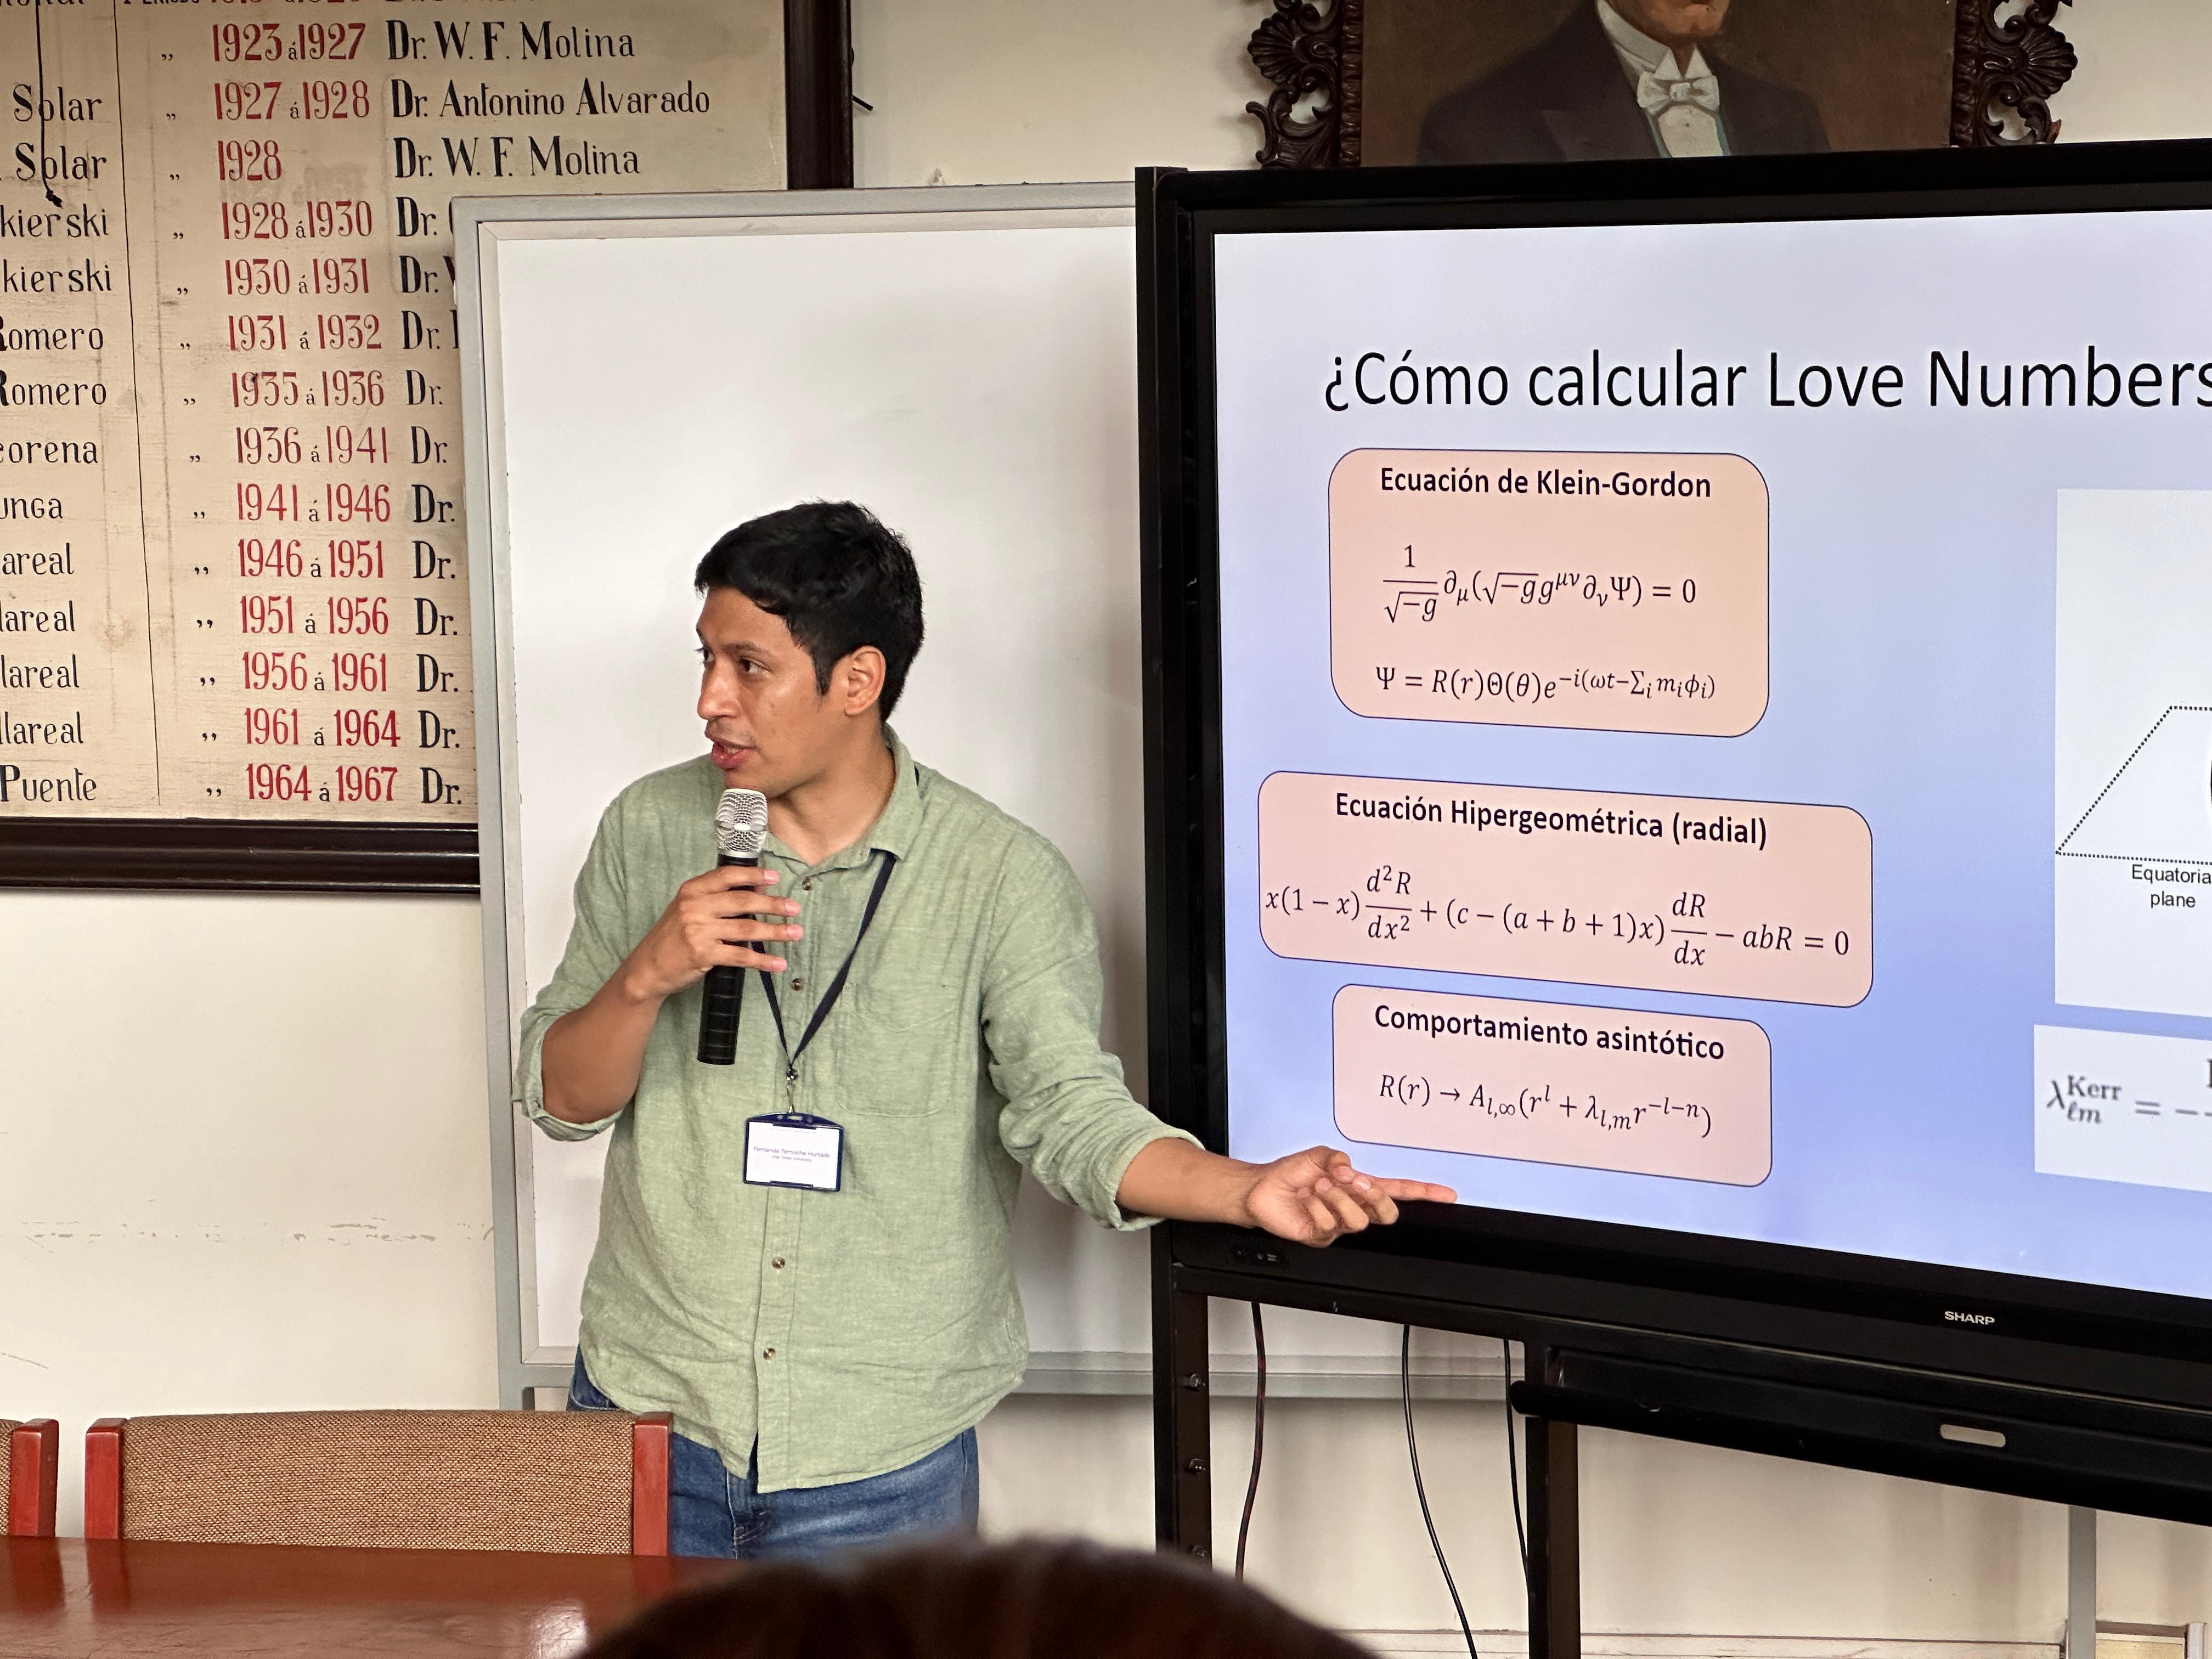 „ 1923 á 1927 Dr. W. F. Molina
Solar „ 1927 á 1928 Dr. Antonino Alvarado
Solar „ 1928 Dr. W. F. Molina
kierski „ 1928 á 1930 Dr.
kierski „ 1930 á 1931 Dr.
Romero „ 1931 á 1932 Dr.
Romero „ 1935 á 1936 Dr.
orena „ 1936 á 1941 Dr.
unga „ 1941 á 1946 Dr.
areal „ 1946 á 1951 Dr.
lareal „ 1951 á 1956 Dr.
lareal „ 1956 á 1961 Dr.
llareal „ 1961 á 1964 Dr.
Puente „ 1964 á 1967 Dr.
¿Cómo calcular Love Numbers
Ecuación de Klein-Gordon
1/√−g ∂μ(√−g gᵘᵛ ∂νΨ) = 0
Ψ = R(r)Θ(θ)e^−i(ωt−∑ᵢ mᵢϕᵢ)
Ecuación Hipergeométrica (radial)
x(1 − x) d²R/dx² + (c − (a + b + 1)x) dR/dx − abR = 0
Comportamiento asintótico
R(r) → A_l,∞(r^l + λ_l,m r^−l−n)
Equatoria
plane
λ^Kerr_ℓm = −
SHARP
Fernando Temoche Hurtado
Utah State University